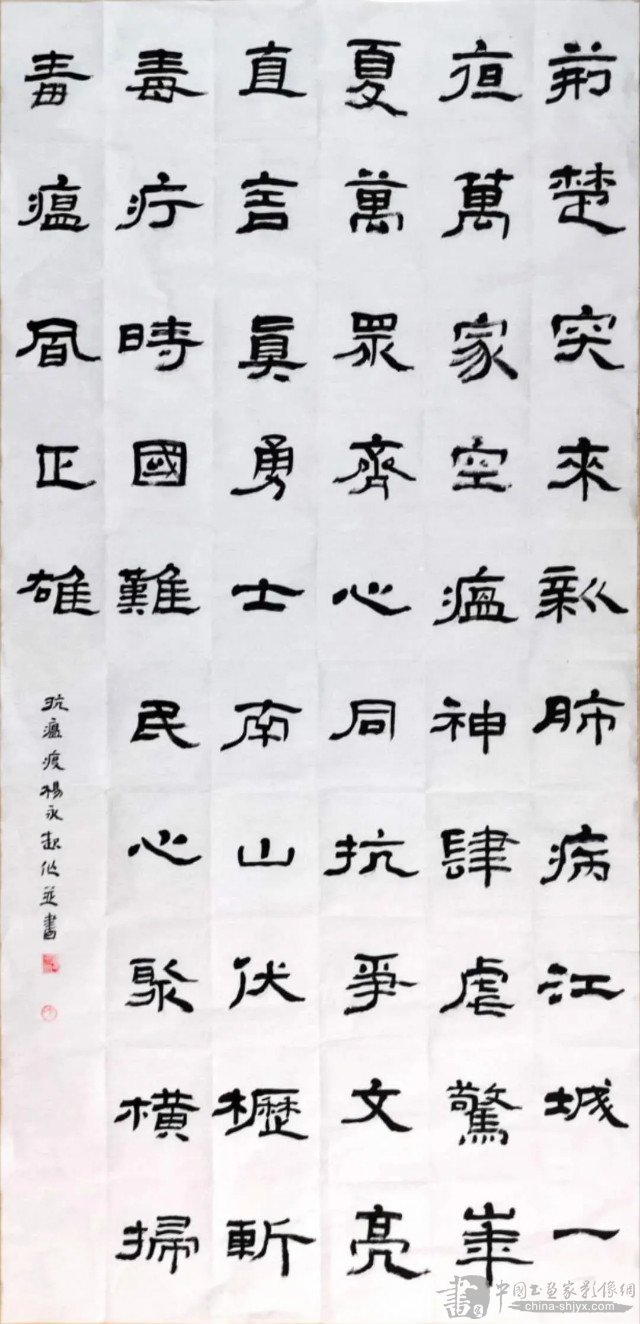 荊楚突來新肺病江城一
夜萬家空瘟神肆虐驚華
夏萬眾齊心同抗爭文亮
直言眞勇士南山伏櫪斬
毒疔時國難民心聚橫掃
毒瘟風正雄
抗瘟疫楊永起作並書
書
中国书画家影像網
china-shjyx.com